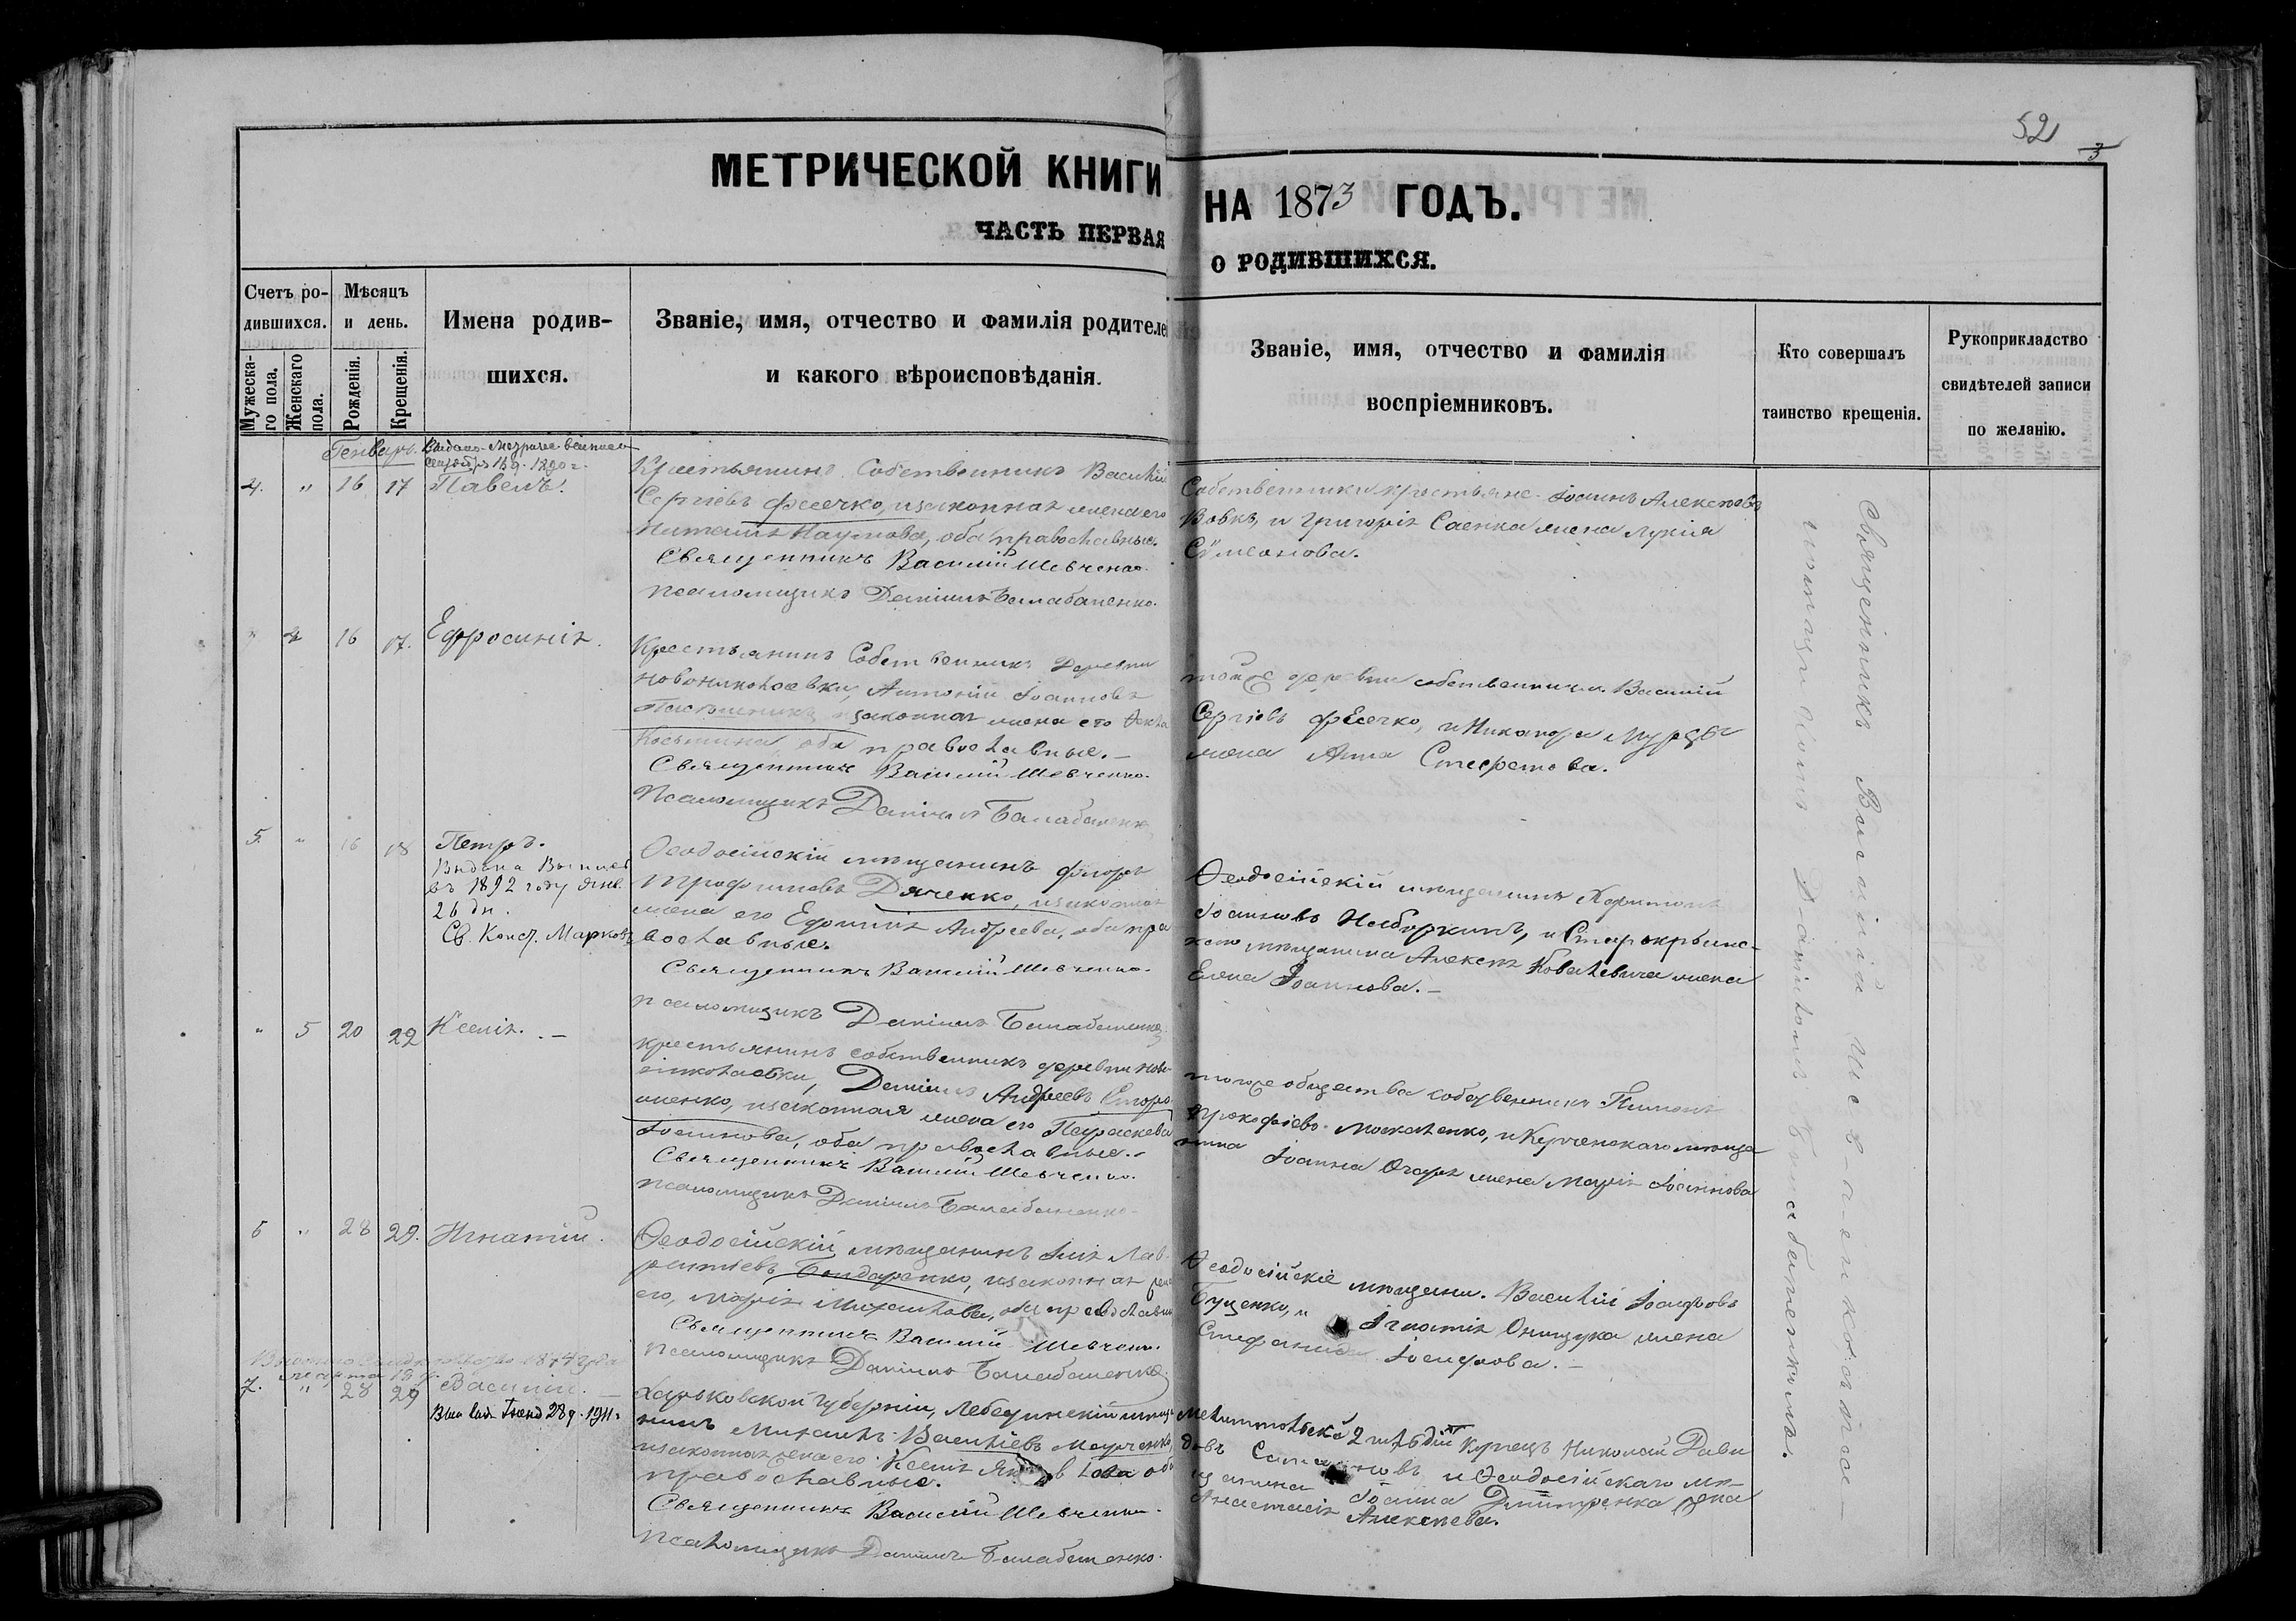 52
3
МЕТРИЧЕСКОЙ КНИГИ НА 1873 ГОДЪ.
ЧАСТЬ ПЕРВАЯ О РОДИВШИХСЯ.
Счетъ ро-
дившихся.
Мужеска-
го пола.
Женскаго
пола.
Мѣсяцъ
и день.
Рожденія.
Крещенія.
Имена родив-
шихся.
Званіе, имя, отчество и фамилія родителе
и какого вѣроисповѣданія.
Званіе, имя, отчество и фамилія
воспріемниковъ.
Кто совершалъ
таинство крещенія.
Рукоприкладство
свидѣтелей записи
по желанію.
Генварь.
4. " 16 17 Павелъ.
Крестьянинъ Собственникъ Василій
Сергіевъ Фесечко, и законная жена его
Наумова, оба православные.
Священникъ Василій Шевченко.
Псаломщикъ Даніилъ Балабаненко.
Собственники крестьяне Іоаннъ Алексѣевъ
Вовкъ, и Григорія Саенка жена Лукія
Сѵмеонова.
" 4 16 17. Ефросинія.
Крестьянинъ Собственникъ Деревни
Новониколаевки, Антоній Іоанновъ
и законная жена его Ѳекла
Косьмина, оба православные. —
Священникъ Василій Шевченко.
Псаломщикъ Даніилъ Балабаненко
тойже деревни собственники Василій
Сергіевъ Фесечко, и Никанора
жена Анна Стефанова.
5. " 16 18 Петръ.
Выдана Выпись
въ 1892 году Янв.
26 дн.
Св. Конст. Марковъ
Ѳеодосійскій мѣщанинъ Флоръ
Трофимовъ Дяченко, и законная
жена его Ефимія Андреева, оба пра
вославные.
Священникъ Василій Шевченко.
Псаломщикъ Даніилъ Балабаненко
Ѳеодосійскій мѣщанинъ Харитонъ
Іоанновъ и Старокрымс-
каго мѣщанина Алексѣя Ковалевича жена
Елена Іоаннова. —
" 5 20 22 Ксенія. —
Крестьянинъ собственникъ деревни Ново-
николаевки, Даніилъ Андреевъ Сторо
женко, и законная жена его Параскева
Іоаннова, оба православные. —
Священникъ Василій Шевченко.
Псаломщикъ Даніилъ Балабаненко.
тогоже общества собственникъ Пименъ
Прокофіевъ Москаленко, и Керченскаго мѣща
нина Іоанна Огаря жена Марія Іоаннова
6 " 28 29. Игнатій.
Ѳеодосійскій мѣщанинъ Илія Лав-
рентіевъ Бондаренко, и законная жена
его, Марія Михайлова, оба православные
Священникъ Василій Шевченко.
Псаломщикъ Даніилъ Балабаненко.
Ѳеодосійскіе мѣщане. Василій Іосифовъ
Буценко, и Игнатія Онищука жена
Стефанида Іосифова. —
7. " 28 29 Василій. —
28 д. 1911 г.
Харьковской Губерніи, Лебединскій мѣща
нинъ Михаилъ Васильевъ Марченко,
и законная жена его Ксенія Яковлева оба
православные.
Священникъ Василій Шевченко.
Псаломщикъ Даніилъ Балабаненко.
Мелитопольскій 2 гильдіи Купецъ Николай Дави
довъ и Ѳеодосійскаго мѣ-
щанина Іоанна Дмитренка жена
Анастасія Алексѣева.
Священникъ Василій Шевченко съ
псаломщикомъ Даніиломъ Балабаненкомъ.